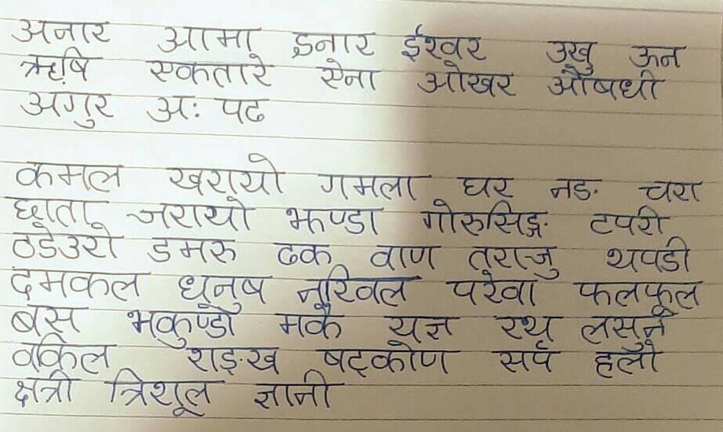 अनार आमा इनार ईश्वर उखु ऊन
ऋषि एकतारे ऐना ओखर औषधी
अगुर अः पढ
कमल खरायो गमला घर नङ चरा
छाता जरायो झण्डा गोरुसिङ्ग टपरी
ठेउरो डमरु ढक वाण तराजु थपडी
दमकल धनुष नरिवल परेवा फलफूल
बस भकुण्डो मकै यज्ञ रथ लसुन
वकिल शङ्ख षट्कोण सर्प हलो
क्षत्री त्रिशूल ज्ञानी